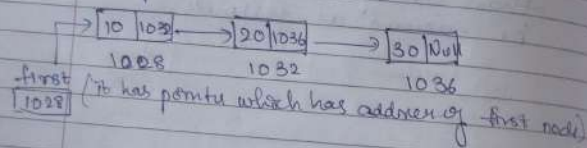 10 1032 20 1036 30 Null
1028 1032 1036
first
1028 (it has pointu which has addres of first node)